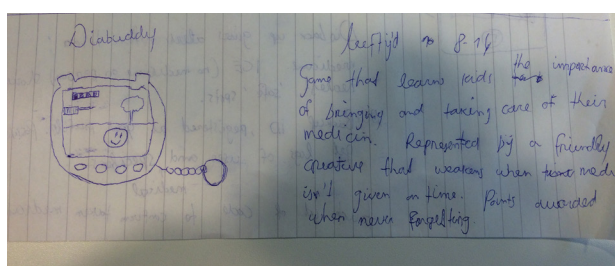 Diabuddy
leeftijd 8-14
Game that learns kids the importance
of bringing and taking care of their
medicin. Represented by a friendly
creature that weakens when medi
isn't given on time. Points awarded
when never forgetting.